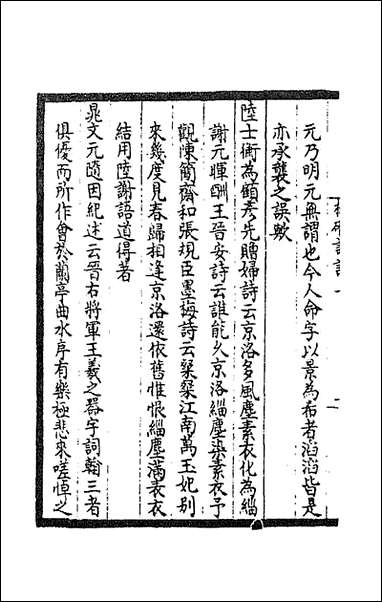 元乃明元無謂也今人命字以景為希者滔滔皆是
亦承襲之誤歟
陸士衡為顧彥先贈婦詩云京洛多風塵素衣化為緇
謝元暉酬王晉安詩云誰能久京洛緇塵染素衣予
觀陳簡齋和張規臣墨梅詩云粲粲江南萬玉妃別
來幾度見春歸相逢京洛還依舊惟恨緇塵滿素衣
結用陸謝語道得著
晁文元隨因紀述云晉右將軍王羲之器宇詞翰三者
俱優而所作會於蘭亭曲水序有樂極悲來嗟悼之